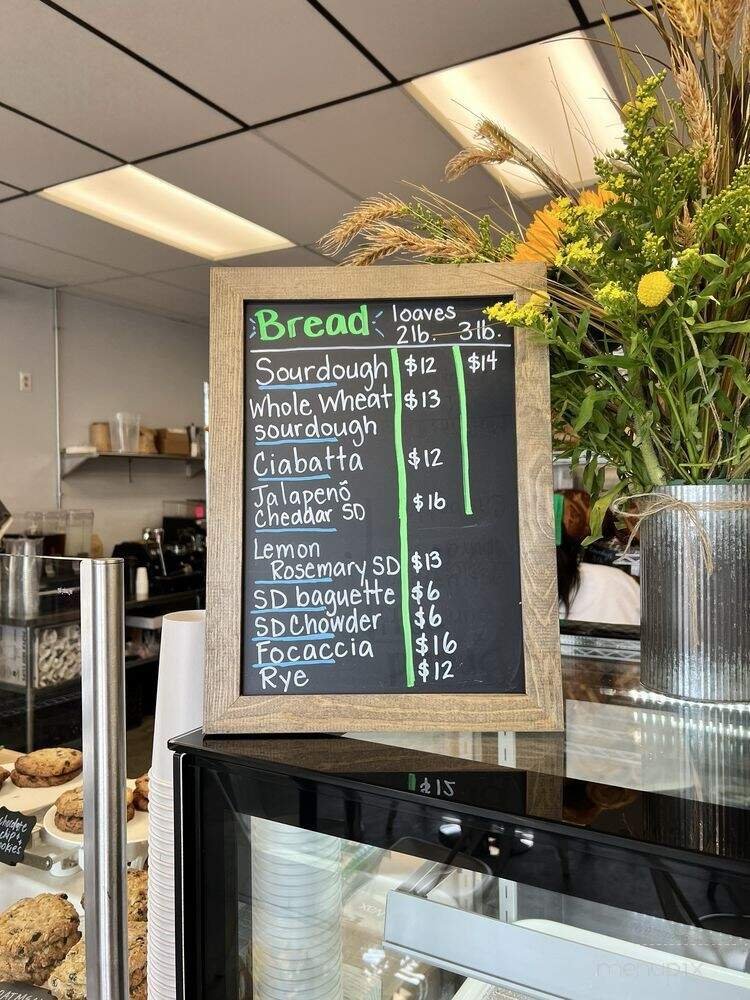 Bread loaves
2lb. 3lb.
Sourdough $12 $14
Whole Wheat $13
sourdough
Ciabatta $12
Jalapenõ
Cheddar SD $16
Lemon
Rosemary SD $13
SD baguette $6
SD Chowder $6
Focaccia $16
Rye $12
chocolate
chip
cookies
menupix